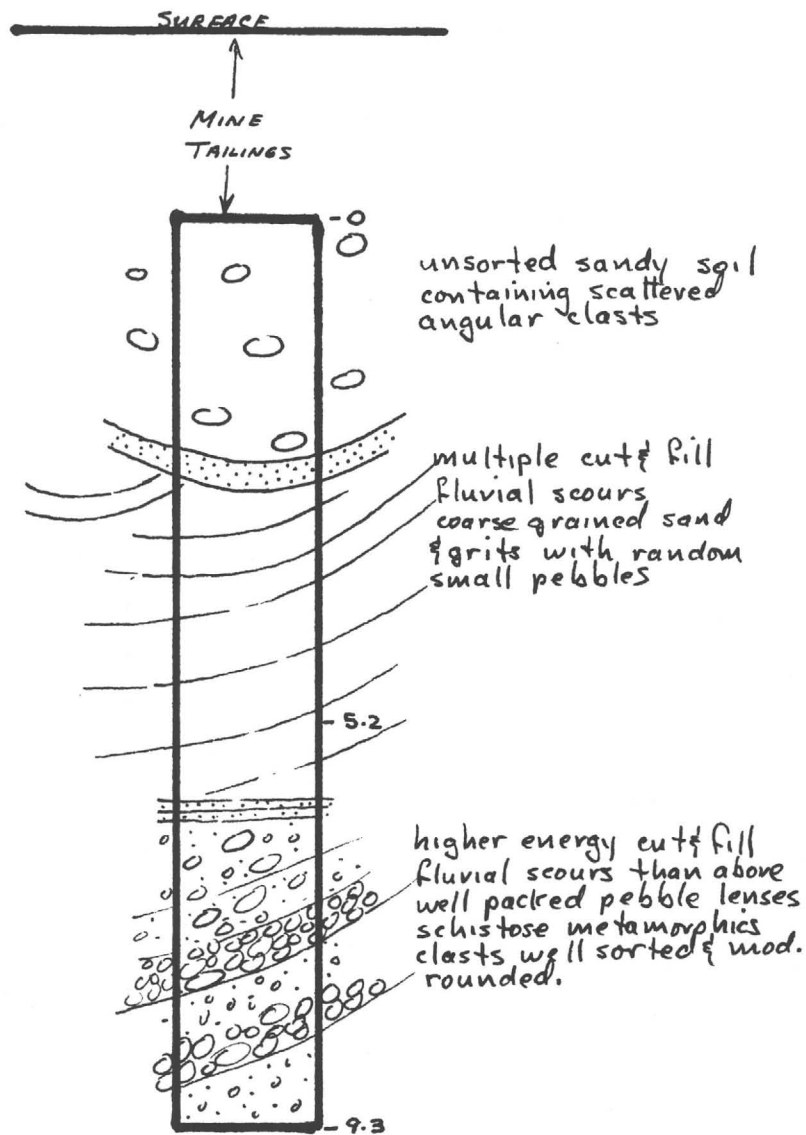 SURFACE
MINE
TAILINGS
- 0
unsorted sandy soil
containing scattered
angular clasts
multiple cut & fill
fluvial scours
coarse grained sand
& grits with random
small pebbles
- 5.2
higher energy cut & fill
fluvial scours than above
well packed pebble lenses
schistose metamorphics
clasts well sorted & mod.
rounded.
- 9.3